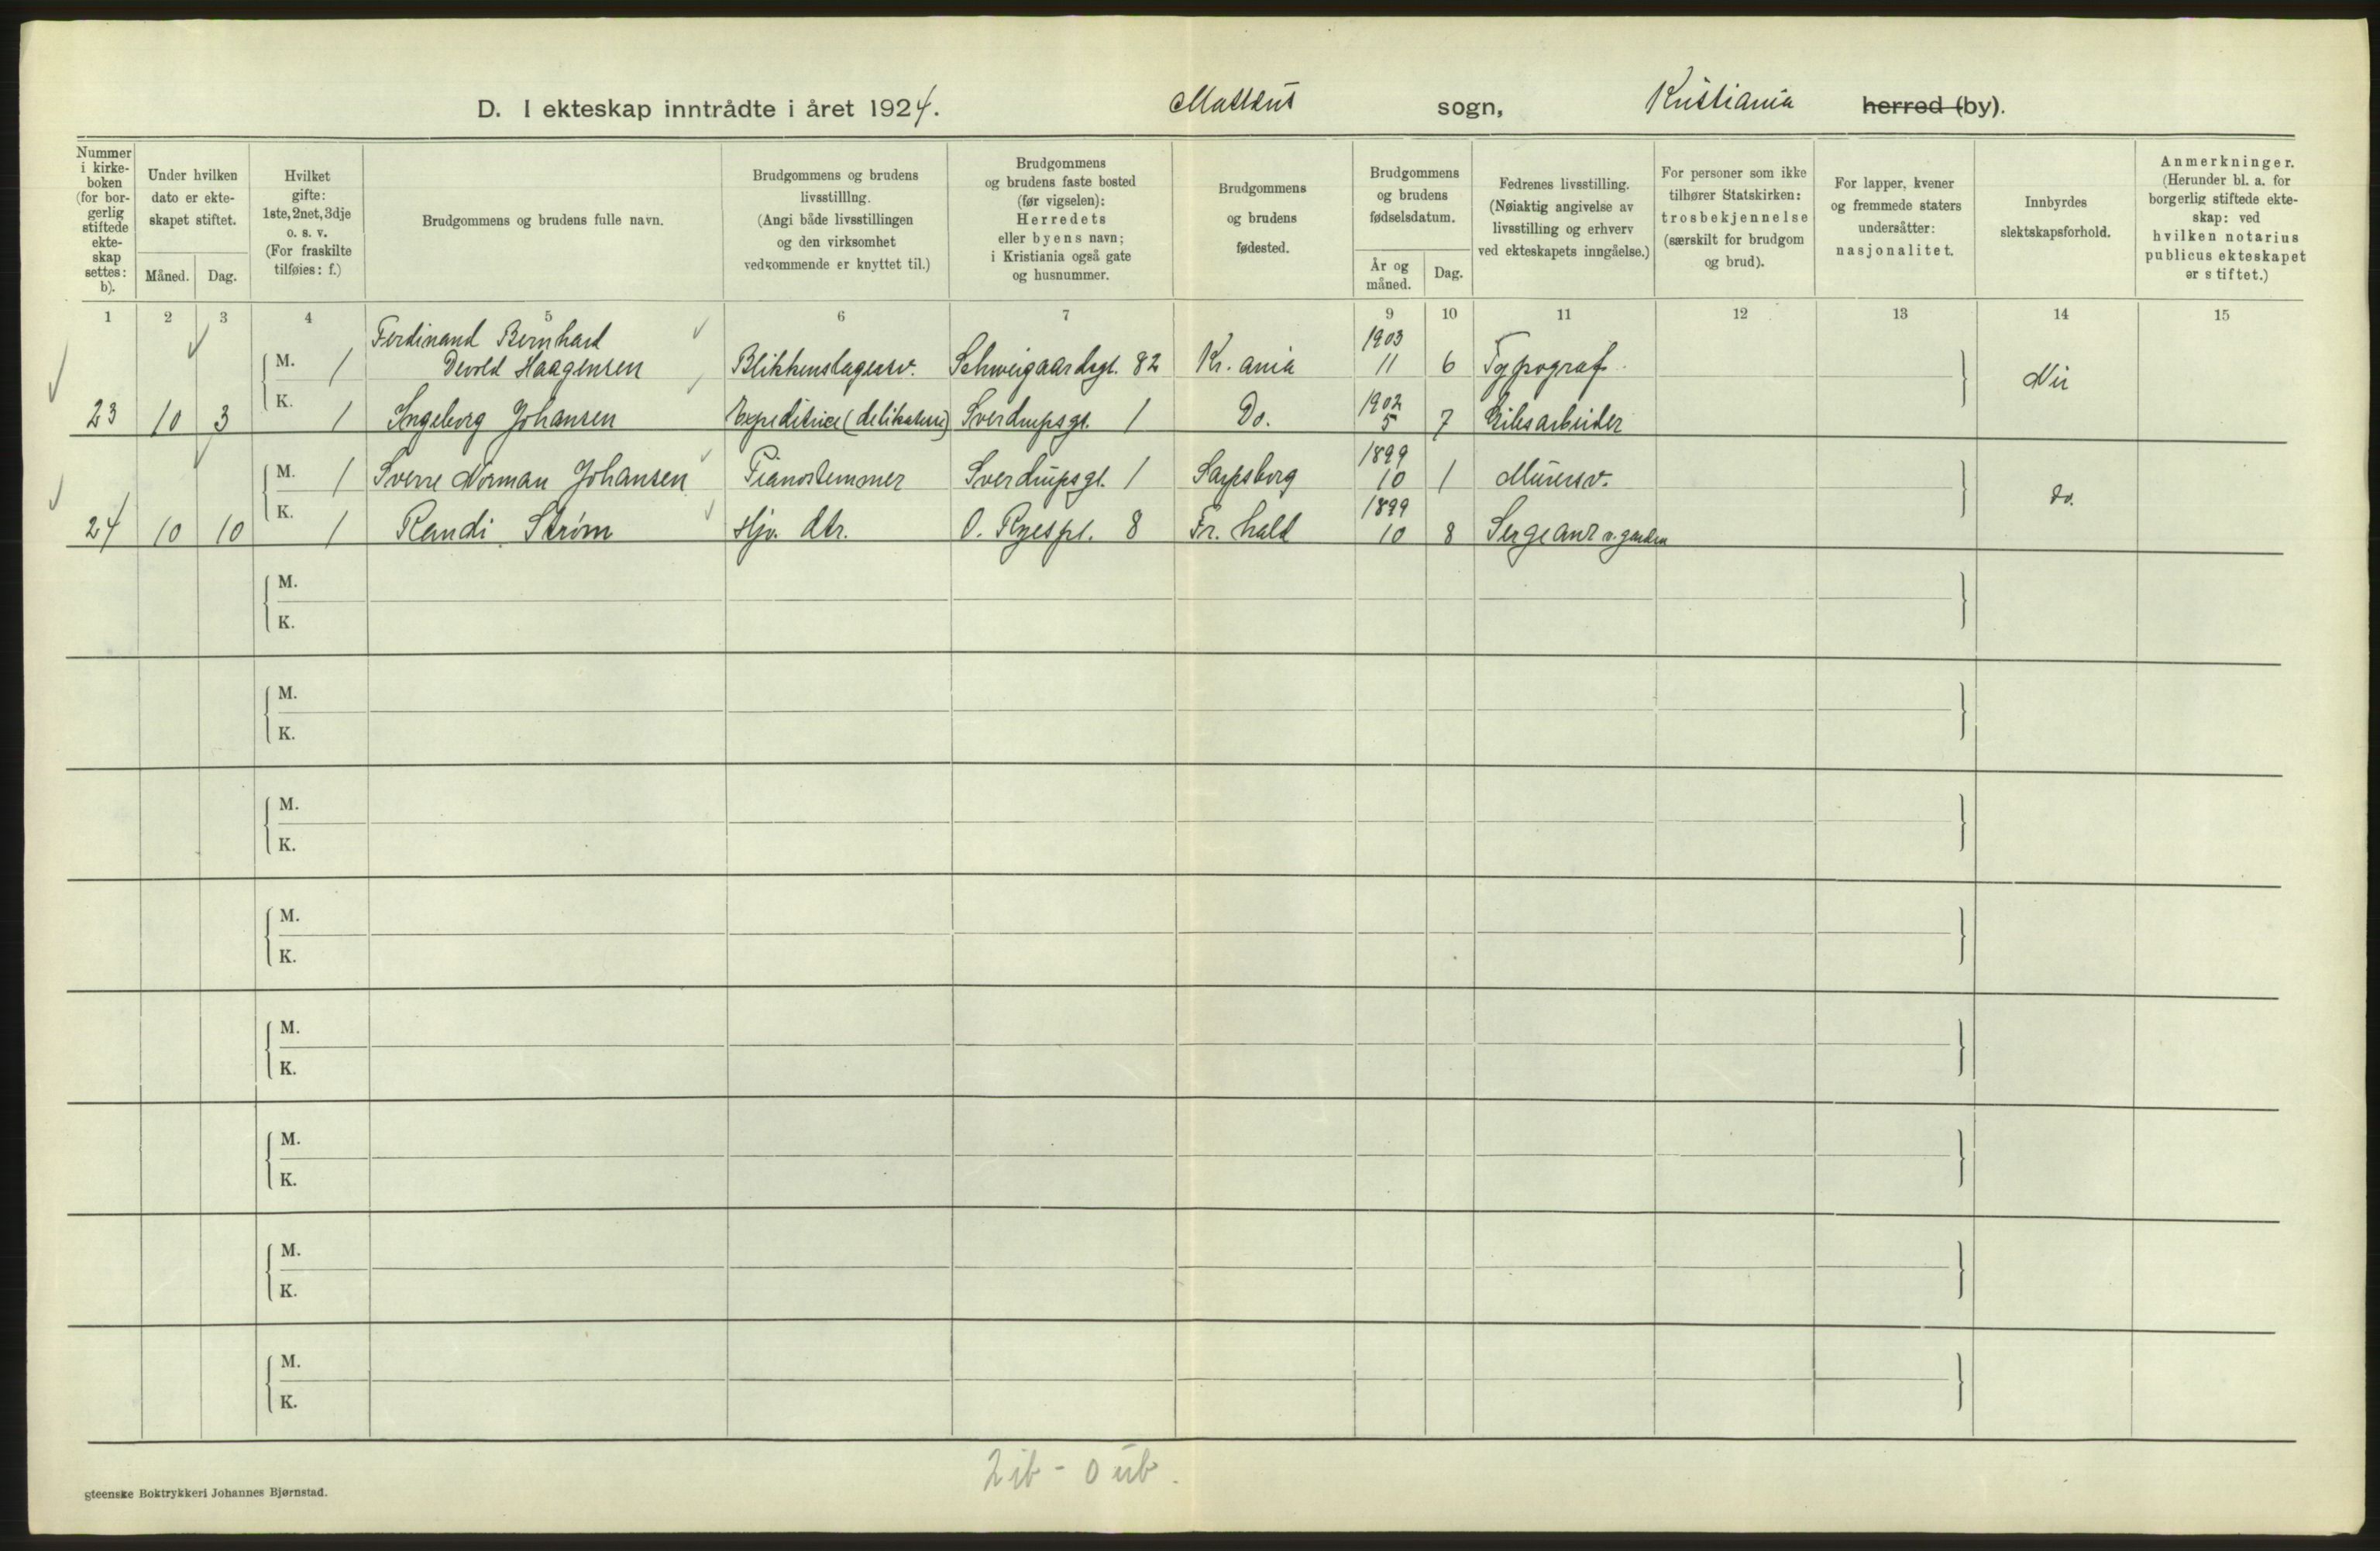 D. I ekteskap inntrådte i året 1924. Mattæus sogn, Kristiania herred (by).
Nummer i kirke-boken (for bor-gerlig stiftede ekte-skap settes: b).
Under hvilken dato er ekte-skapet stiftet.
Måned. Dag.
Hvilket gifte: 1ste, 2net, 3dje o. s. v. (For fraskilte tilføies: f.)
Brudgommens og brudens fulle navn.
Brudgommens og brudens livsstilllng. (Angi både livsstillingen og den virksomhet vedkommende er knyttet til.)
Brudgommens og brudens faste bosted (før vigselen): Herredets eller byens navn; i Kristiania også gate og husnummer.
Brudgommens og brudens fødested.
Brudgommens og brudens fødselsdatum.
År og måned. Dag.
Fedrenes livsstilling. (Nøiaktig angivelse av livsstilling og erhverv ved ekteskapets inngåelse.)
For personer som ikke tilhører Statskirken: trosbekjennelse (særskilt for brudgom og brud).
For lapper, kvener og fremmede staters undersåtter: nasjonalitet.
Innbyrdes slektskapsforhold.
Anmerkninger. (Herunder bl. a. for borgerlig stiftede ekte-skap: ved hvilken notarius publicus ekteskapet er stiftet.)
1 2 3 4 5 6 7 9 10 11 12 13 14 15
Ferdinand Bernhard 1903
M. 1 Devold Haagensen Blikkenslagersv. Schweigaardsgt. 82 Kr.ania 11 6 Typograf Nei
1902
23 10 3 K. 1 Ingeborg Johansen Expeditrice (delikatesse) Sverdrupsgt. 1 Do. 5 7 Eilesarbeider
1899
M. 1 Sverre Norman Johansen Pianostemmer Sverdrupsgt. 1 Sarpsborg 10 1 Murersv. do.
1899
24 10 10 K. 1 Randi Strøm Hjv. dtr. O. Ryespl. 8 Fr.hald 10 8 Sergeant v. garden
M.
K.
M.
K.
M.
K.
M.
K.
M.
K.
M.
K.
M.
K.
M.
K.
2 ib - 0 ub.
Steenske Boktrykkeri Johannes Bjørnstad.